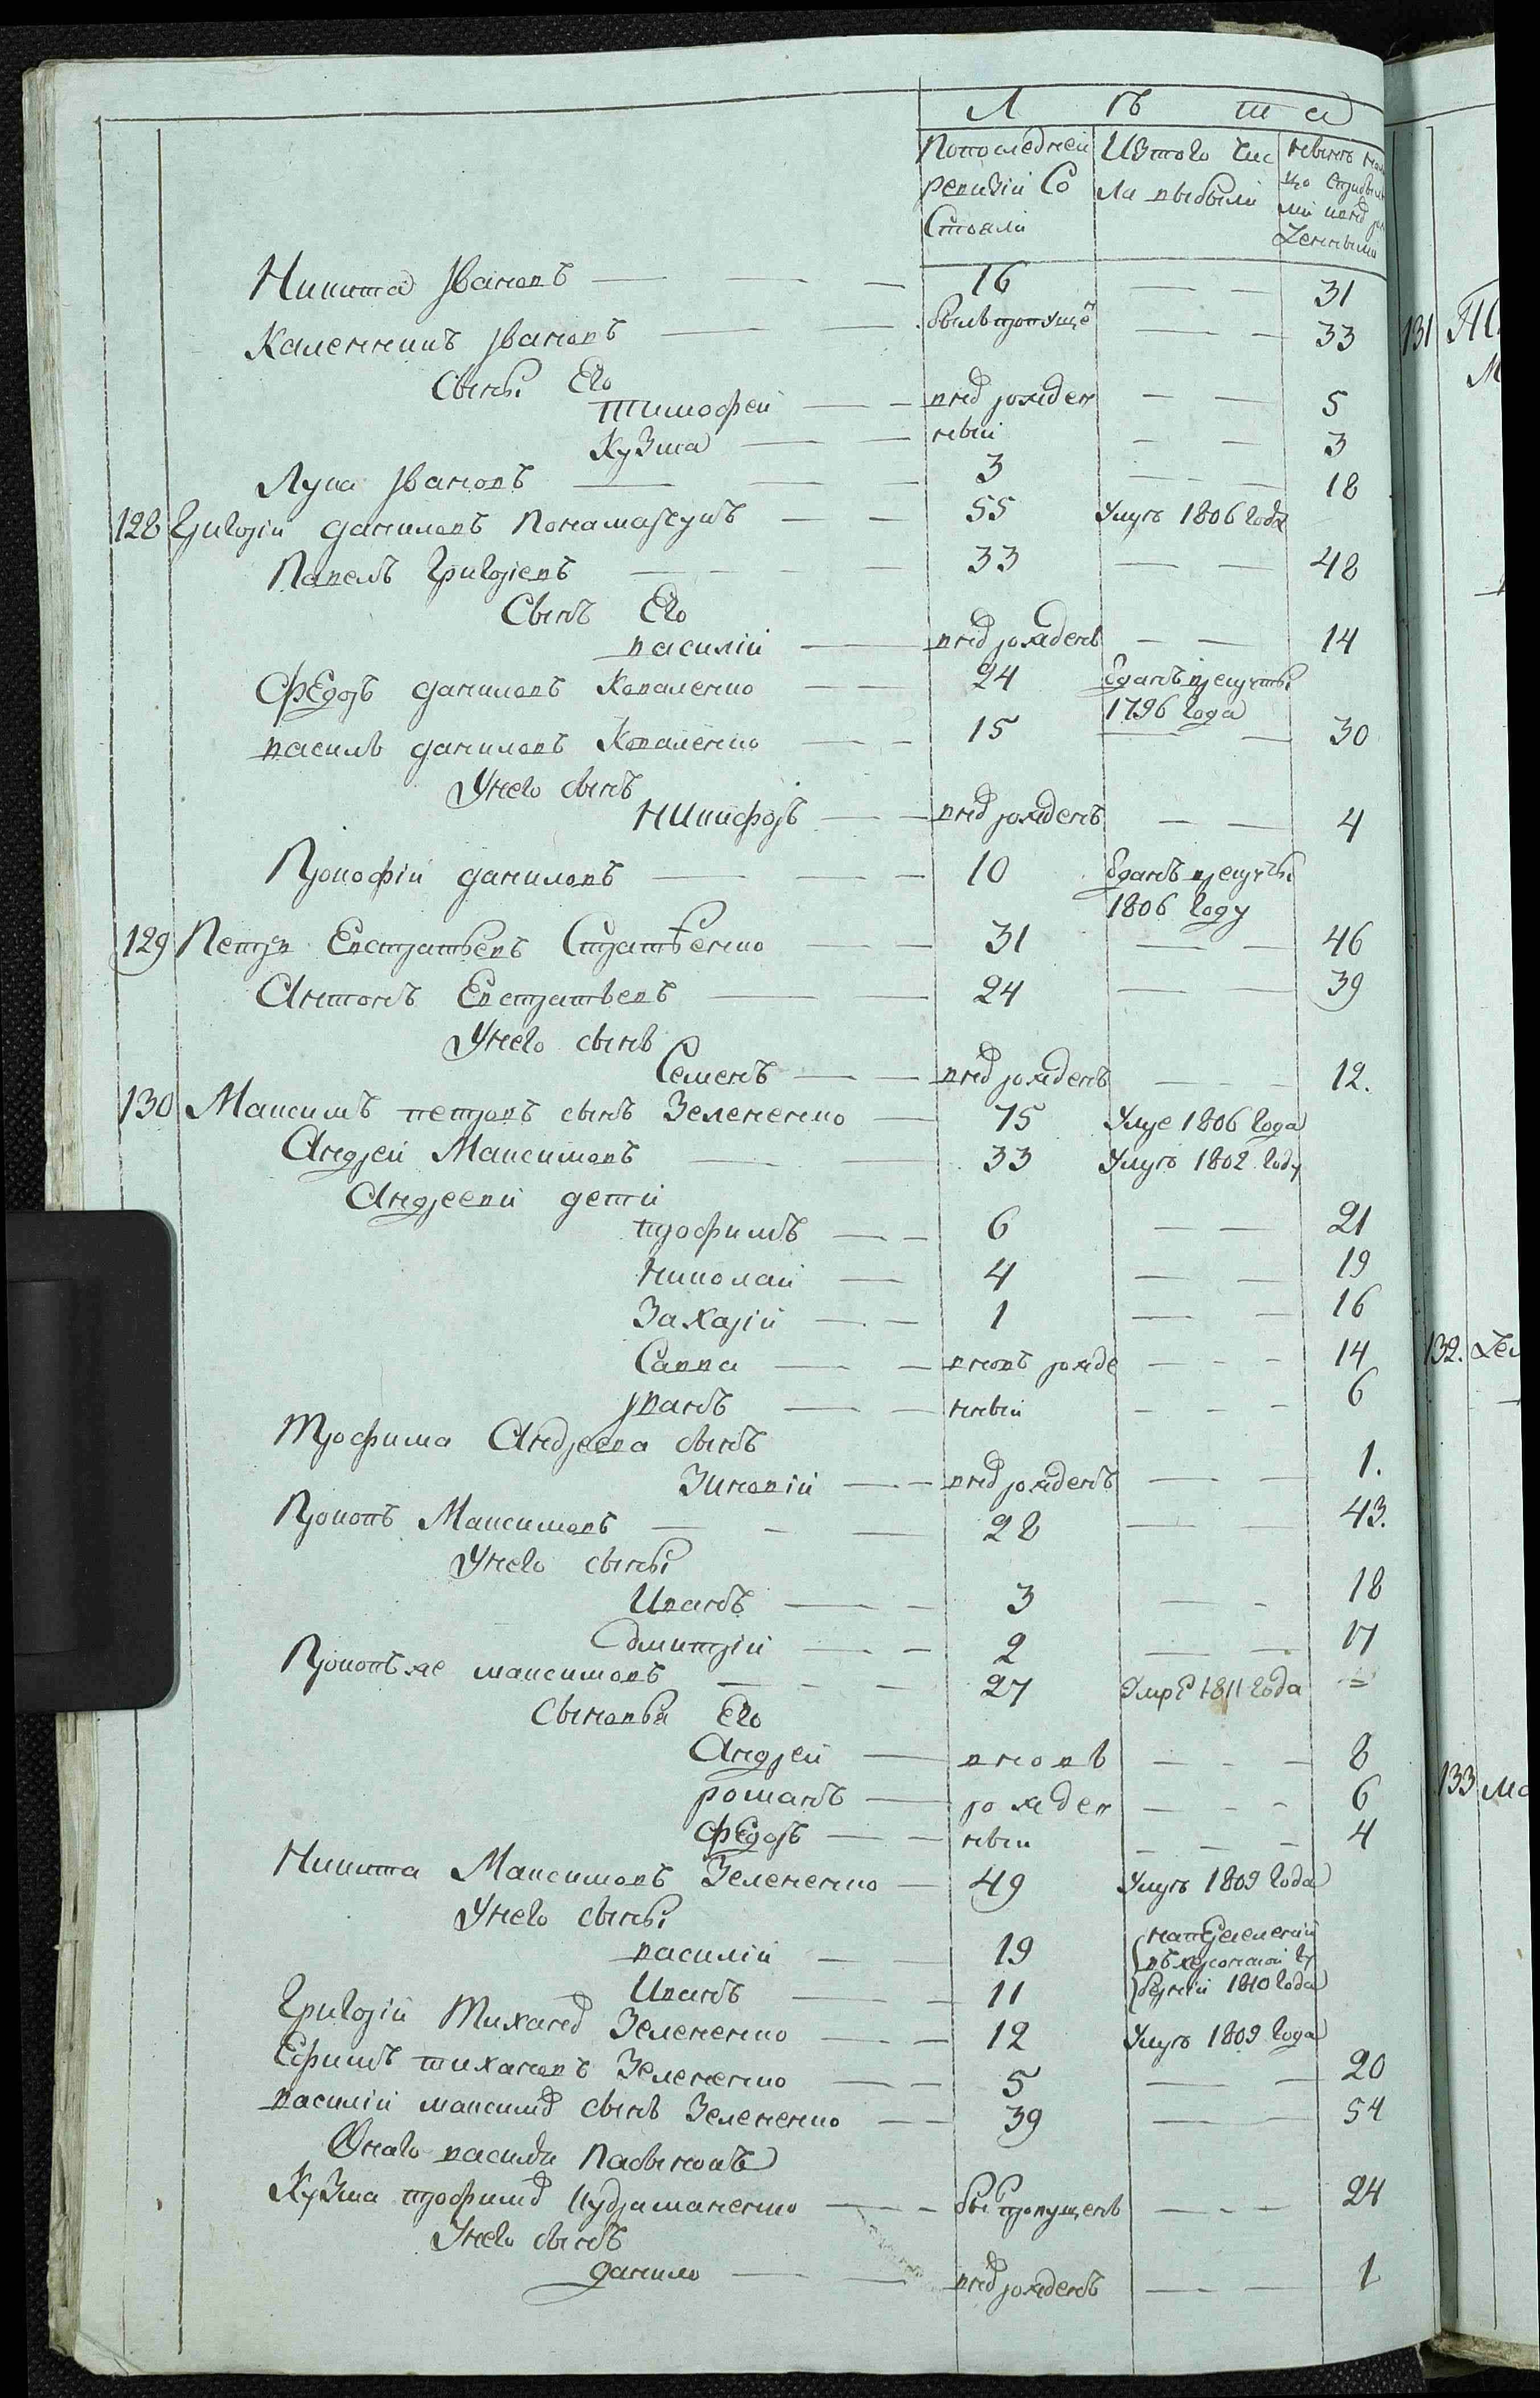 Л ѣ т а
Попоследней Изтого чис
ревизіи Со ла выбыли
Стояли
Никита Jвановъ — 16 — 31
Каленникъ Jвановъ — былъ пропущен — 33
Сынъı Его
Тимофей — внѡвь рожден — 5
Кузма — ныи — 3
Лука Jвановъ — 3 — 18
128 Григорій даниловъ Понамарчукъ — 55 Умръ 1806 года
Павелъ Григоріевъ — 33 — 48
Сынъ Его
василій — вновь рожденъ — 14
Федоръ даниловъ Коваленко — 24 Зданъ врекруты
1796 года
василь даниловъ Коваленко — 15 — 30
Унего сынъ
Никифоръ — вновь рожденъ — 4
Прокофій даниловъ — 10 Зданъ врекруты
1806 году
129 Петръ Евстратьевъ Стратѣенко — 31 — 46
Антонъ Евстратьевъ — 24 — 39
Унего сынъ
Семенъ — вновь рожденъ — 12.
130 Максимъ петровъ сынъ Зелененко — 75 Умре 1806 года
Андрей Максимовъ — 33 Умръ 1802 году
Андреевы дети
трофимъ — 6 — 21
Николай — 4 — 19
Захарій — 1 — 16
Савва — вновъ рожде — 14
Jванъ — нныи — 6
Трофима Андреева сынъ
Зиновій — вновь рожденъ — 1.
Прокопъ Максимовъ — 28 — 43.
Унего сыны
Иванъ — 3 — 18
Дмитрій — 2 — 17
Прокопъ же максимовъ — 27 Умре 1811 года
Сыновья Его
Андрей — вновь — 8
романъ — рожден — 6
Федоръ — ныи — 4
Никита Максимовъ Зелененко — 49 Умръ 1809 года
Унего сыны
василій — 19 напереселеніи
въ херсонской гу
Иванъ — 11 берніи 1810 года
Григорій Тихановъ Зелененко — 12 Умръ 1809 года
Ефимъ тихановъ Зелененко — 5 — 20
василій максимовъ сынъ Зелененко — 39 — 54
Онаго василя Пасынокъ
Кузма трофимовъ Кудраманенко — былъ пропущенъ — 24
Унего сынъ
данило — вновь рожденъ — 1
131
132.
133